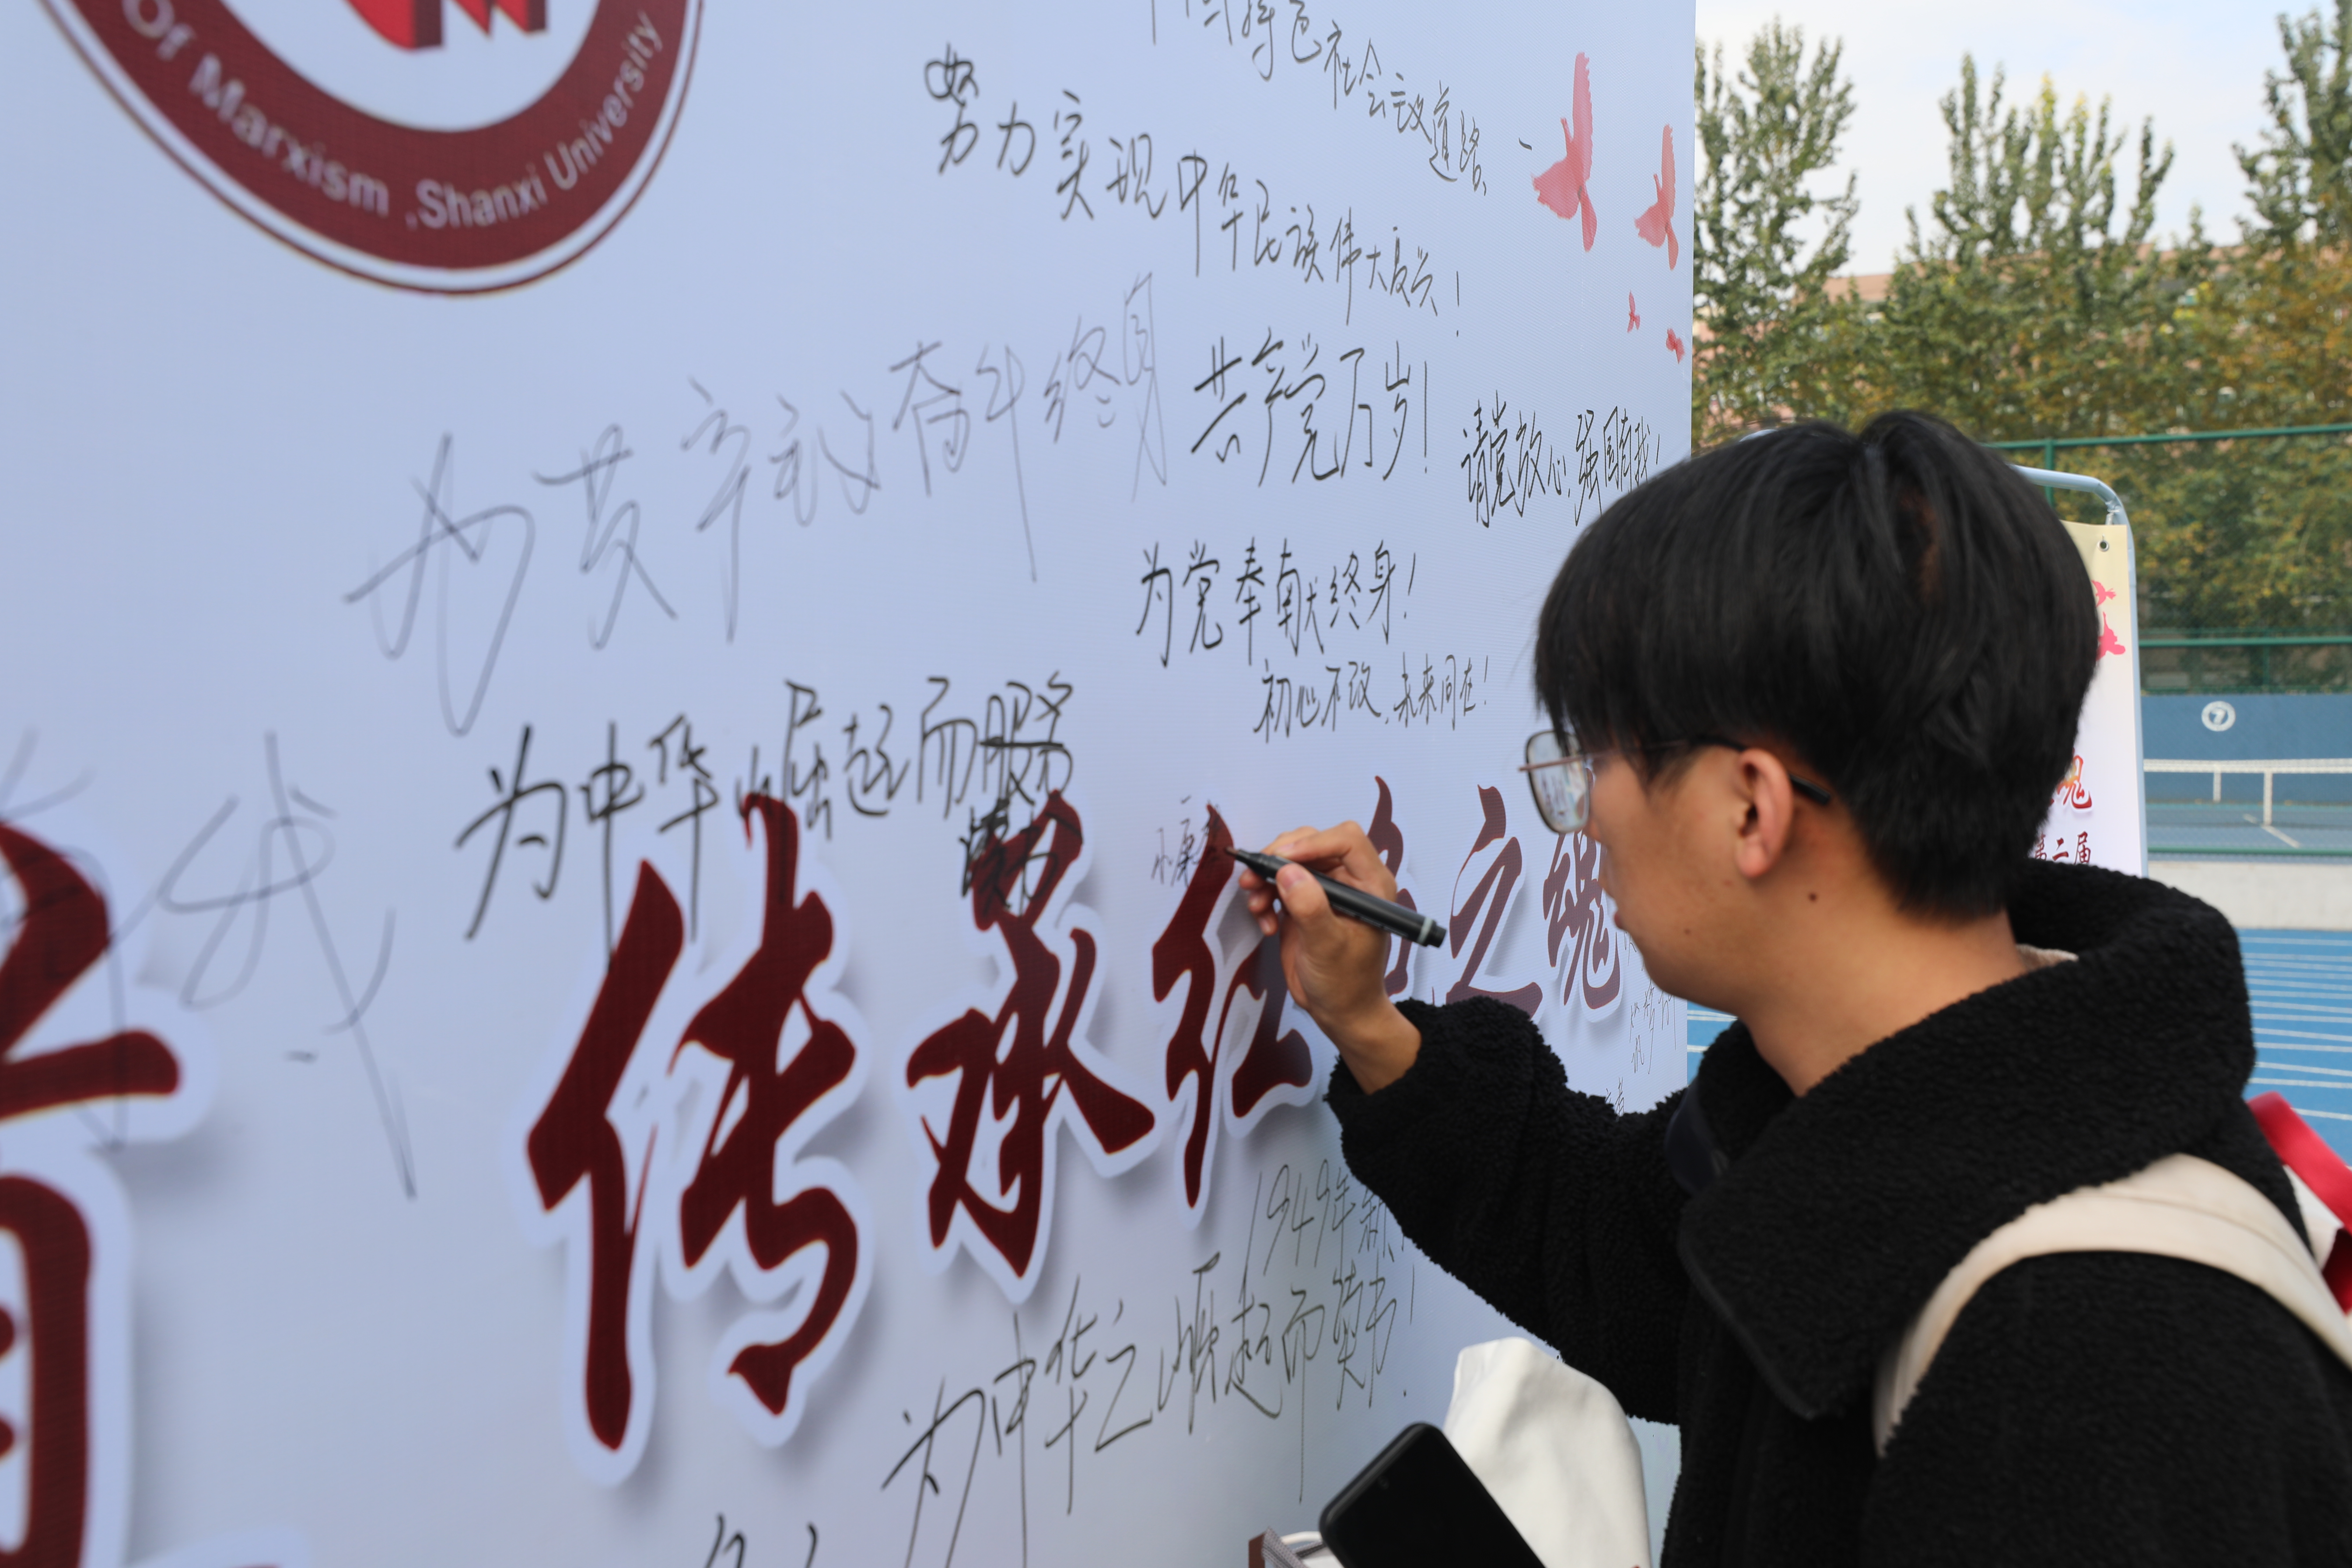 Of Marxism ,Shanxi University
特色社会主义道路、
努力实现中华民族伟大复兴!
为共产主义奋斗终身
共产党万岁!
请党放心,强国有我!
为党奉献终身!
初心不改,未来同在!
为中华崛起而服务
读书
传承红色之魂
魂
第二届
1949年新
为中华之崛起而读书!